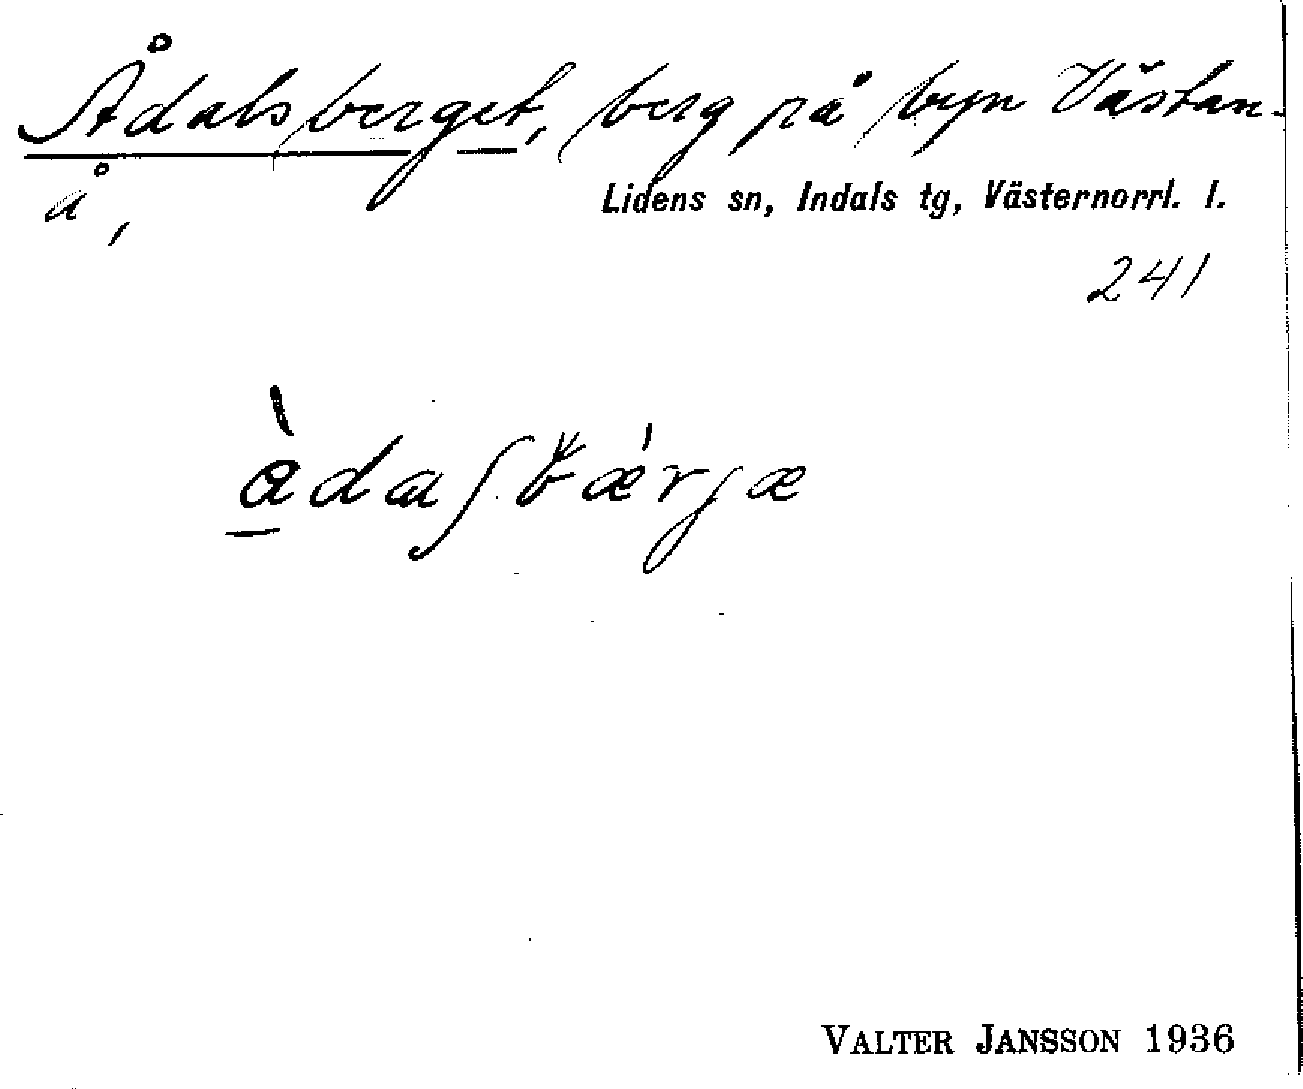 Ådalsberget, berg på byn Västan-
å,
Lidens sn, Indals tg, Västernorrl. l.
241
VALTER JANSSON 1936